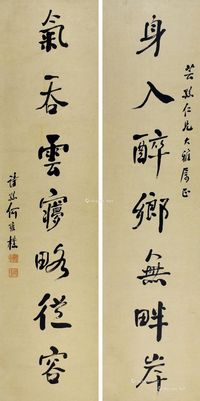 芸孫仁兄大雅屬正
身入醉鄉無畔岸
氣吞雲夢略從容
詩孫何維樸